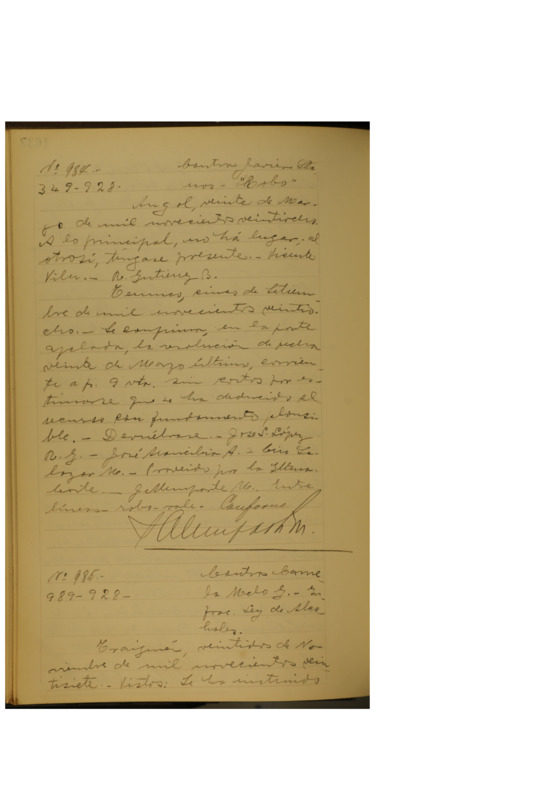 Nº 984.- Contra Javier Lla
349-928. nos - "Robo"
Angol, veinte de Mar-
zo de mil novecientos veintiocho.
A lo principal, no há lugar; al
otrosí, téngase presente.- Vicente
R. Gutierrez B.
Temuco, cinco de Setiem-
bre de mil novecientos veintio-
cho.- Se confirma, en la parte
apelada, la resolución de fecha
veinte de Marzo último, corrien-
te a fs. 9 vta. sin costas por es-
timarse que se ha deducido el
recurso con fundamento plausi-
ble.- Devuélvase.- José S. López
R. G.- José Arancibia A.- Luis Sa-
lazar M.- Proveido por la Iltma.
Corte.- M. Entre
líneas- robo- vale. Conforme
Nº 985.- Contra Carme
989-928- la Melo G.- In-
frac. Ley de Alco
holes.
Traiguén, veintidos de No-
viembre de mil novecientos vein
tisiete.- Vistos: Se ha instruido